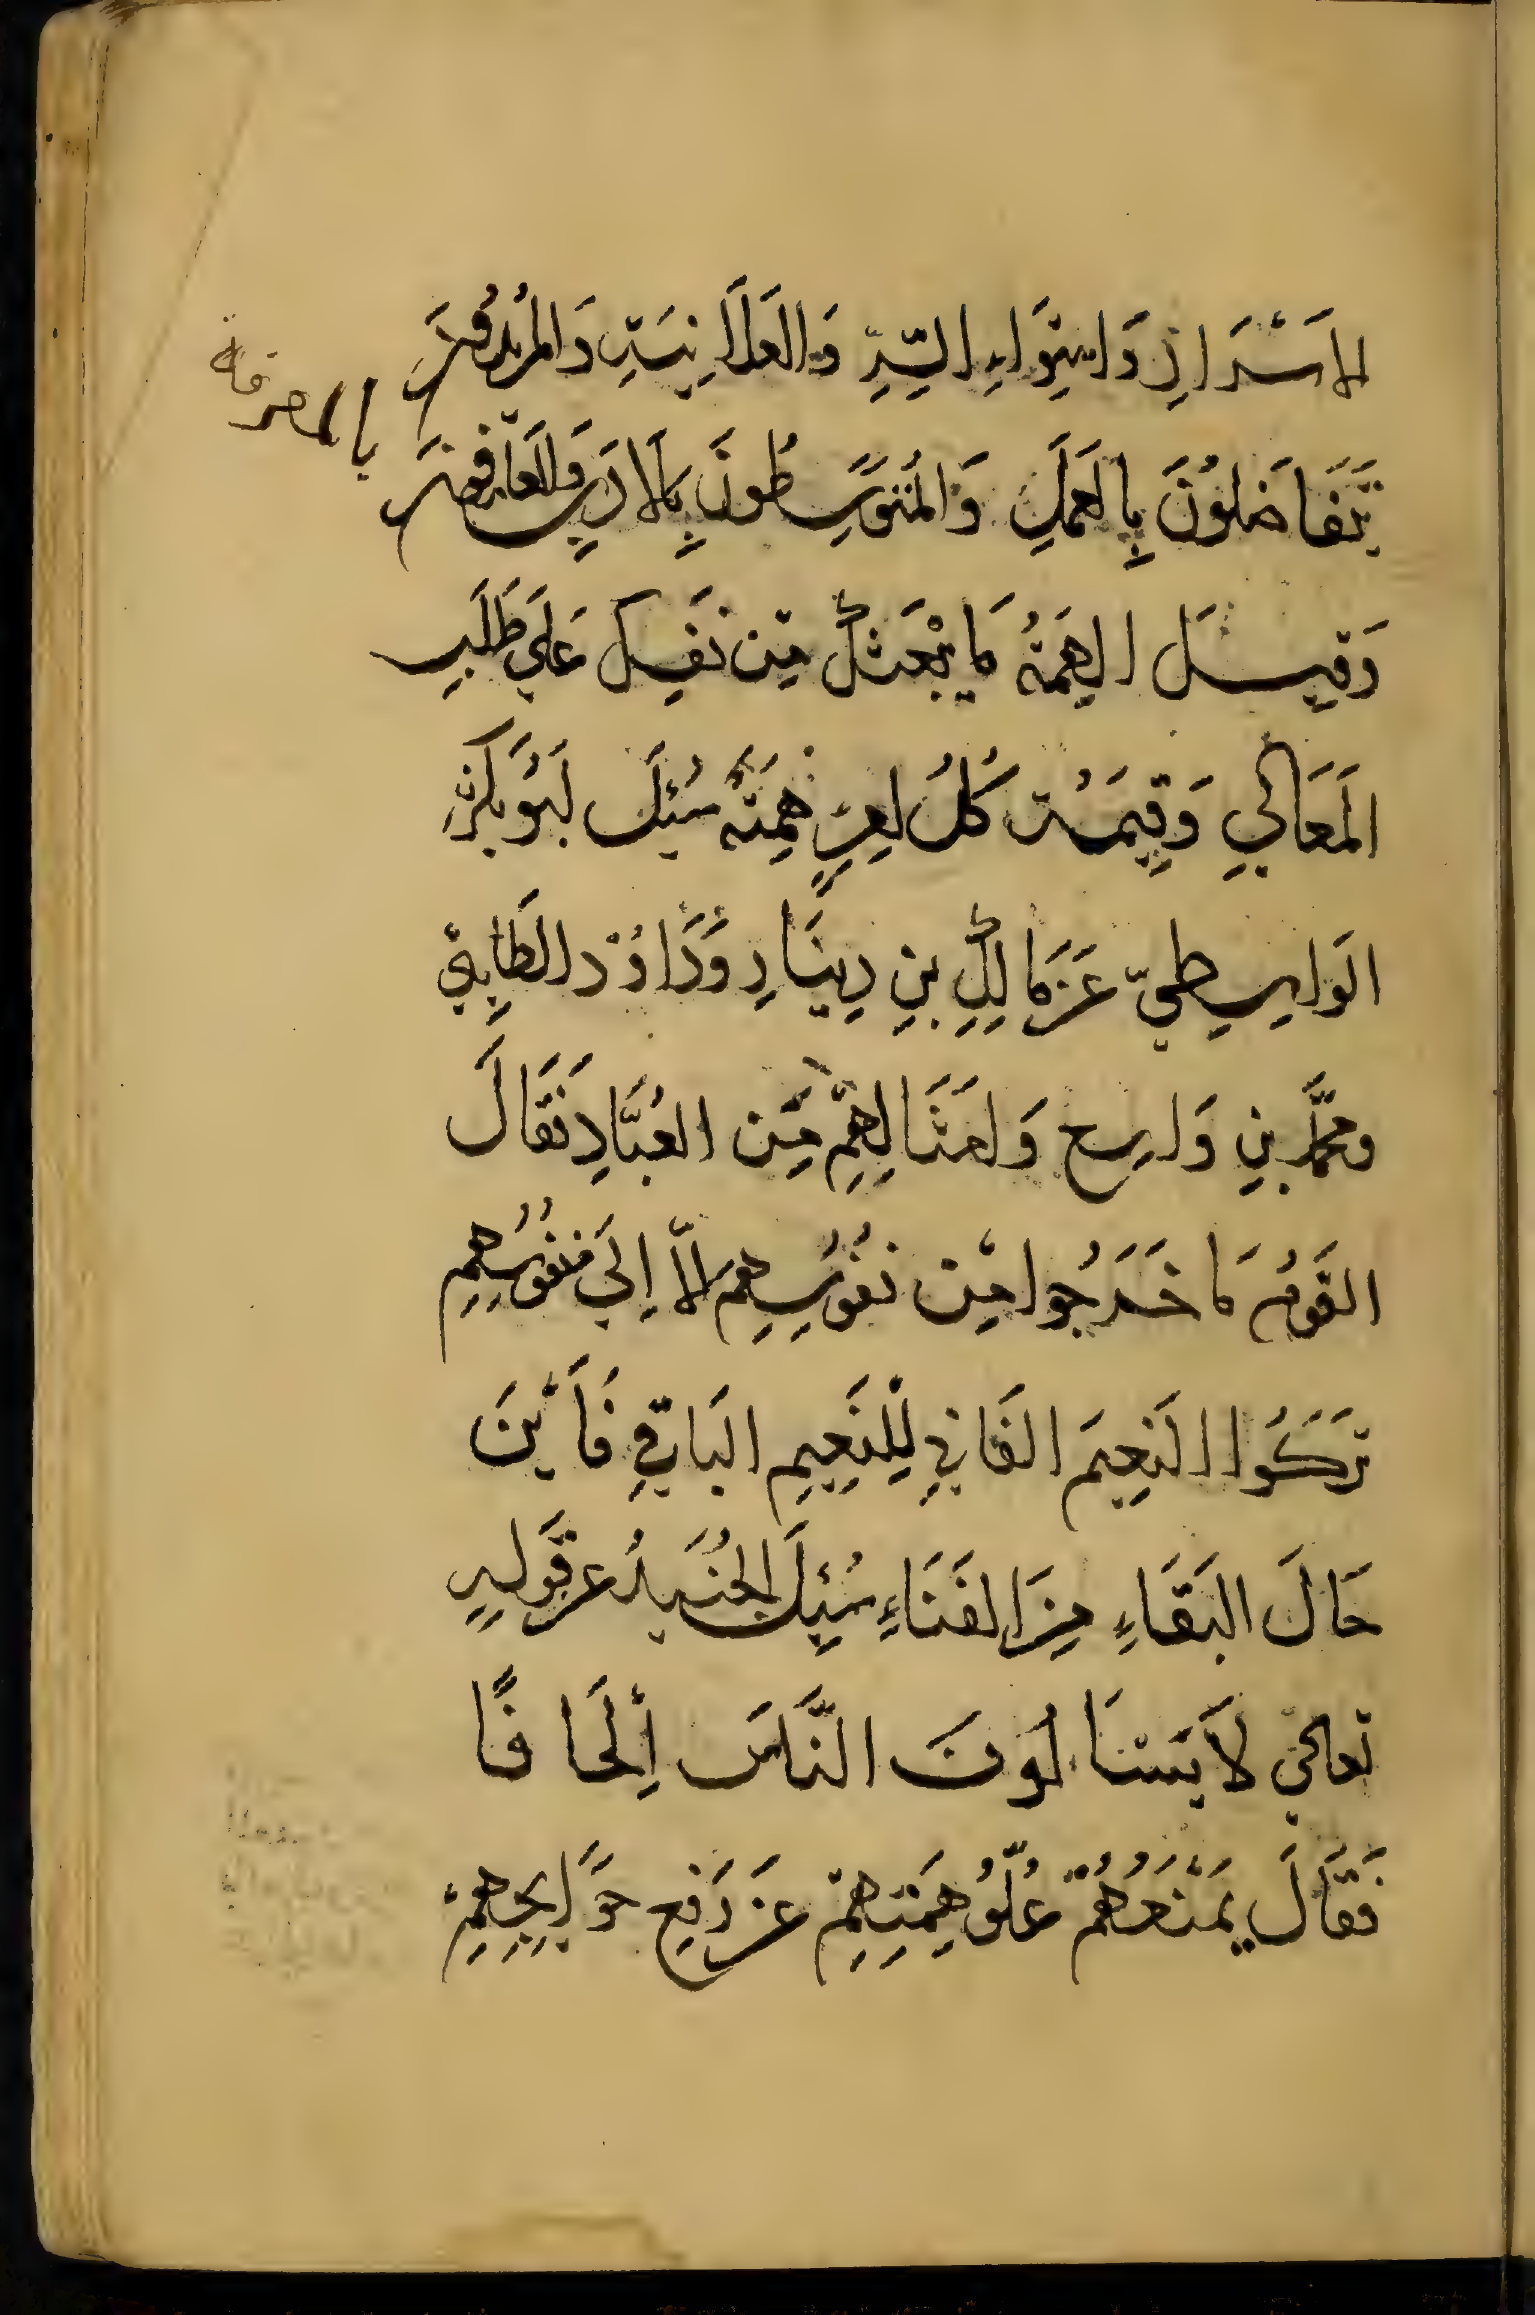 الاَسْرَارِ وَاسْتِوَاءِ السِّرِّ وَالعَلَانِيَةِ وَالمُرِيدُونَ
يَتَفَاضَلُونَ بِالعَمَلِ وَالمُتَوَسِّطُونَ بِالادَبِ وَالعَارِفُونَ
بالمعرفة
وَقِيلَ الهِمَّةُ مَا يَبْعَثُكَ مِن نَفْسِكَ عَلَي طَلَبِ
المَعَالِي وَقِيمَةُ كُلُ امْرِءٍ هِمَّتُهُ سُئِلَ أَبُو بَكْرٍ
الوَاسِطِيّ عَن مَالِكِ بنِ دِينَارِ وَدَاوُد الطَائِي
ومحمَّد بنِ وَاسِعٍ وَامثَالِهِمْ مِّن العُبَّادِ فَقَالَ
القَومُ مَا خَرَجُوا مِن نفُوسِهِم الاّ اِلَي نفُوسِهِمِ
تَرَكُوا النَعِيمَ الفَانِي لِلنَعِيمِ البَاقِي فَأَيْنَ
حَالَ البَقَاءِ مِنَ الفَنَاءِ سُئِلَ الجُنَيدُ عن قَولِهِ
تعالي لَا يَسْئَالُونَ النَّاسَ إِلحَافًا
فَقَالَ يَمْنَعُهُمْ عُلُوُّ هِمَّتِهِمْ عَن رَفعِ حَوَايِجِهِمْ